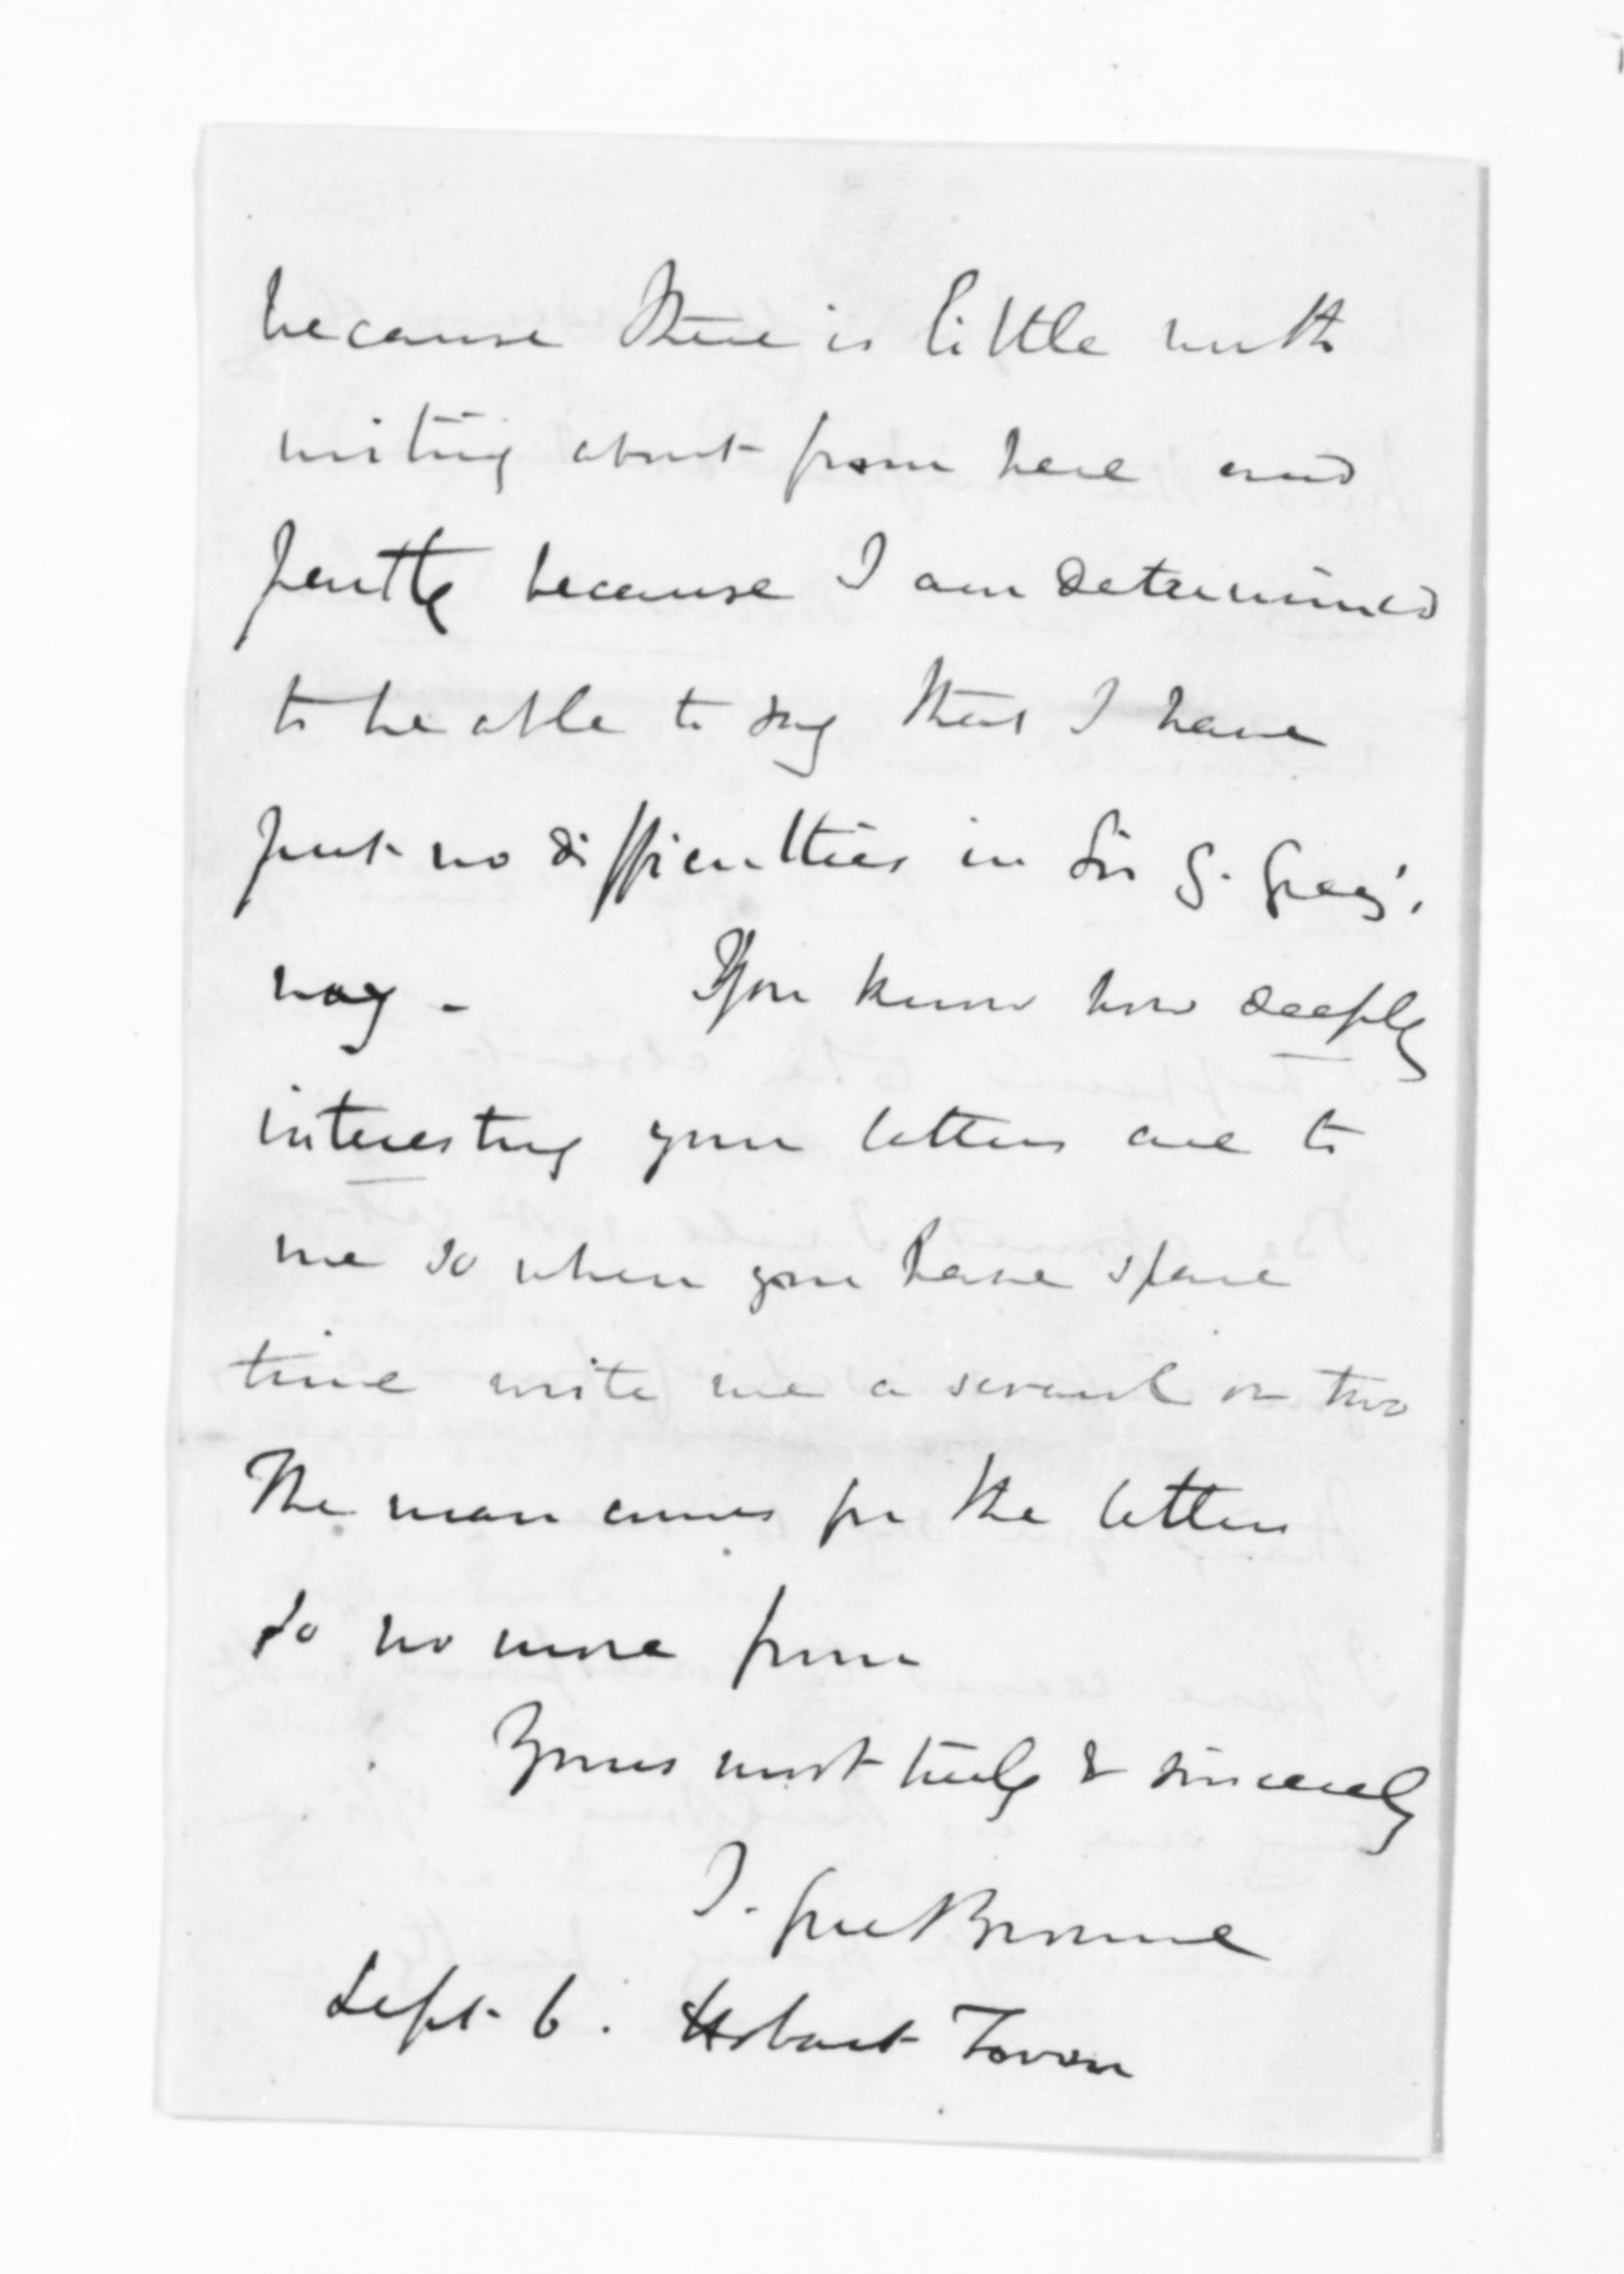 because there is little worth
writing about from here and
partly because I am determined
to be able to say that I have
put no difficulties in Sir G. Grey's
way - You know how deeply
interesting your letters are to
me so when you have spare
time write me a scrawl or two
The man comes for the letters
So no more from
Yours most truly & sincerely
T. Gore Browne
Sept. 6. Hobart Town